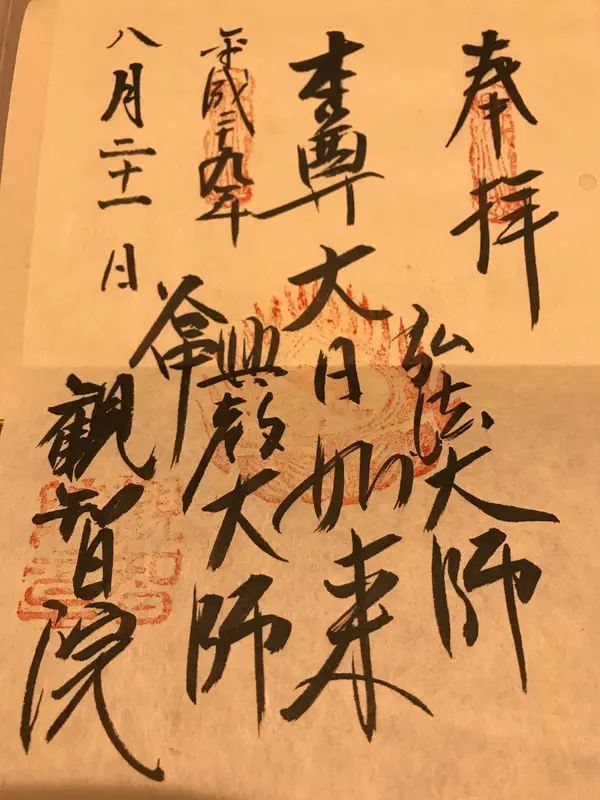 奉拝
弘法大師
本尊大日如来
興教大師
平成二十九年
八月二十一日
観智院